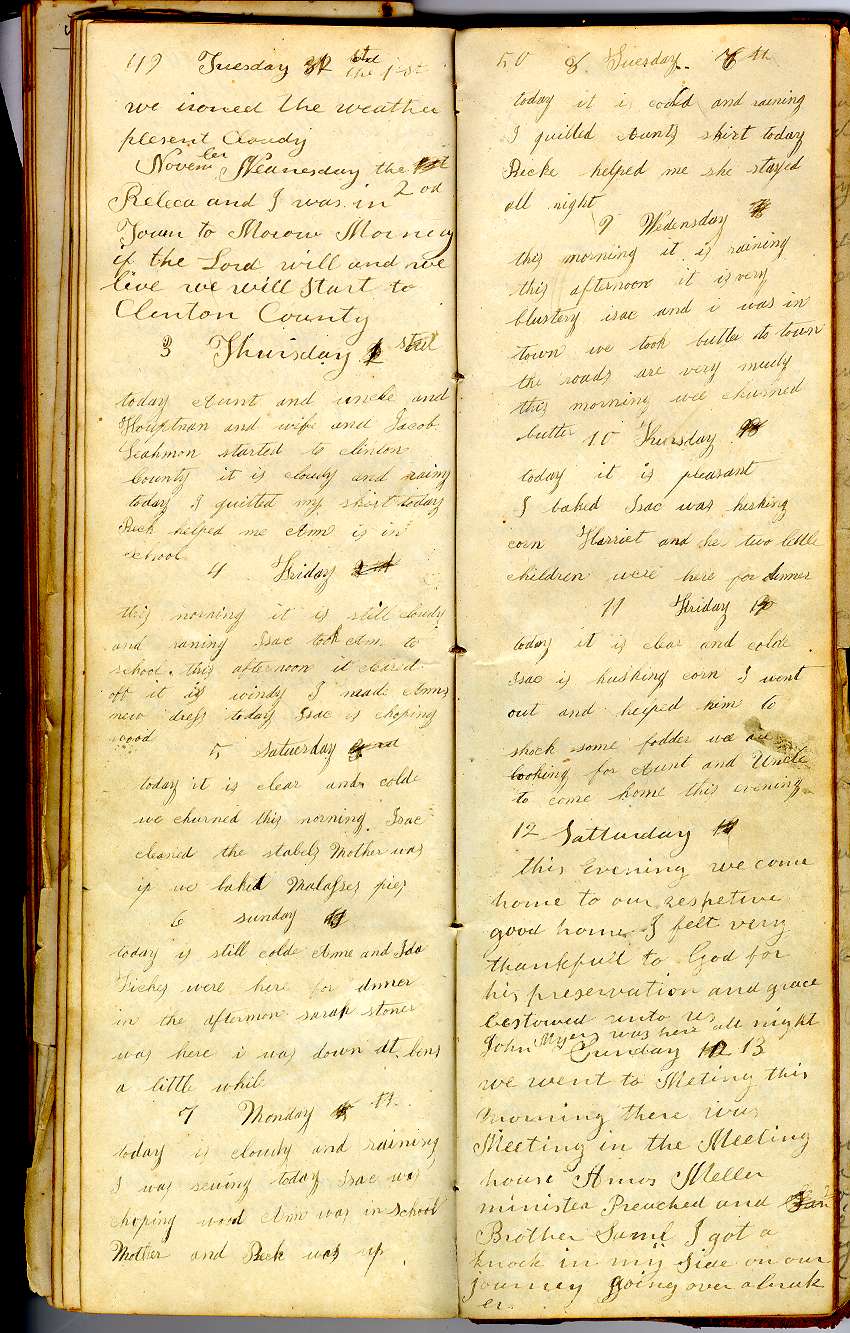 49 Tuesday the 1st
we ironed the weather
present Cloudy
November Wednesday the
2 od
Rebeca and I was in
Town to Morow Morneng
if the Lord will and we
live we will start to
Clenton County
3 Thursday
today Aunt and uncke and
Houptman and wife and Jacob
Leahmon started to clinton
County it is cloudy and rainy
today I quilted my skirt today
Beck helped me Ann is in
school
4 Friday
this morning it is still cloudy
and raning Isac took Am to
school. this afternoon it clear'd
off it is windy I made Anns
new dress today Isac is choping
wood
5 Satuerday
today it is clear and colde
we churned this norning Isac
cleasied the stabels Mother was
ip we baked Malasses pies
6 sunday
today is still colde Ame and Ida
were here for dnner
in the afternon sarah stoner
was here i was down at bens
a little while
7 Monday
today is cloudy and raining
I was sewing today Isac was
choping wood Ann was in school
Mother and Beck was up
50 8 Tuesday
today it is coold and raining
I quilted Aunts skirt today
Becke helped me she stayed
all night
9 Wedensday
this morning it is raining
this afternoon it is very
blustery isac and i was in
town we took butter to town
the roads are very mudy
this morning we churned
butter
10 Thursday
today it is pleasant
I baked Isac was husking
corn Harriet and he two little
children were here for dinner
11 Friday
today it is clear and colde
Isac is husking corn I went
out and helped him to
shock some fodder we are
looking for Aunt and Uncle
to come home this evening
12 Satturday
this Evening we come
home to our respetive
good home I felt very
thankfull to God for
his preservation and grace
bestowed unto us
John Myers was here all night
Sunday 13
we went to Meting this
morning there was
Meeting in the Meeting
house Amos Meller
minister Preached and
Brother Saml I got a
knock in my side on our
journey going over a break
er.